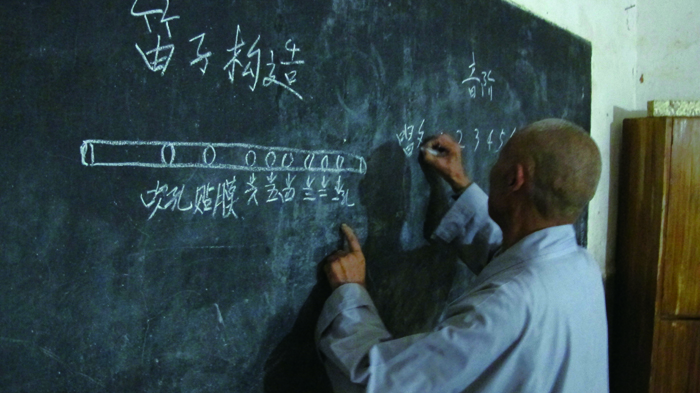 笛子构造
音阶
唱名 2 3 4 5
吹孔 贴膜 六 五 四 三 二 一孔